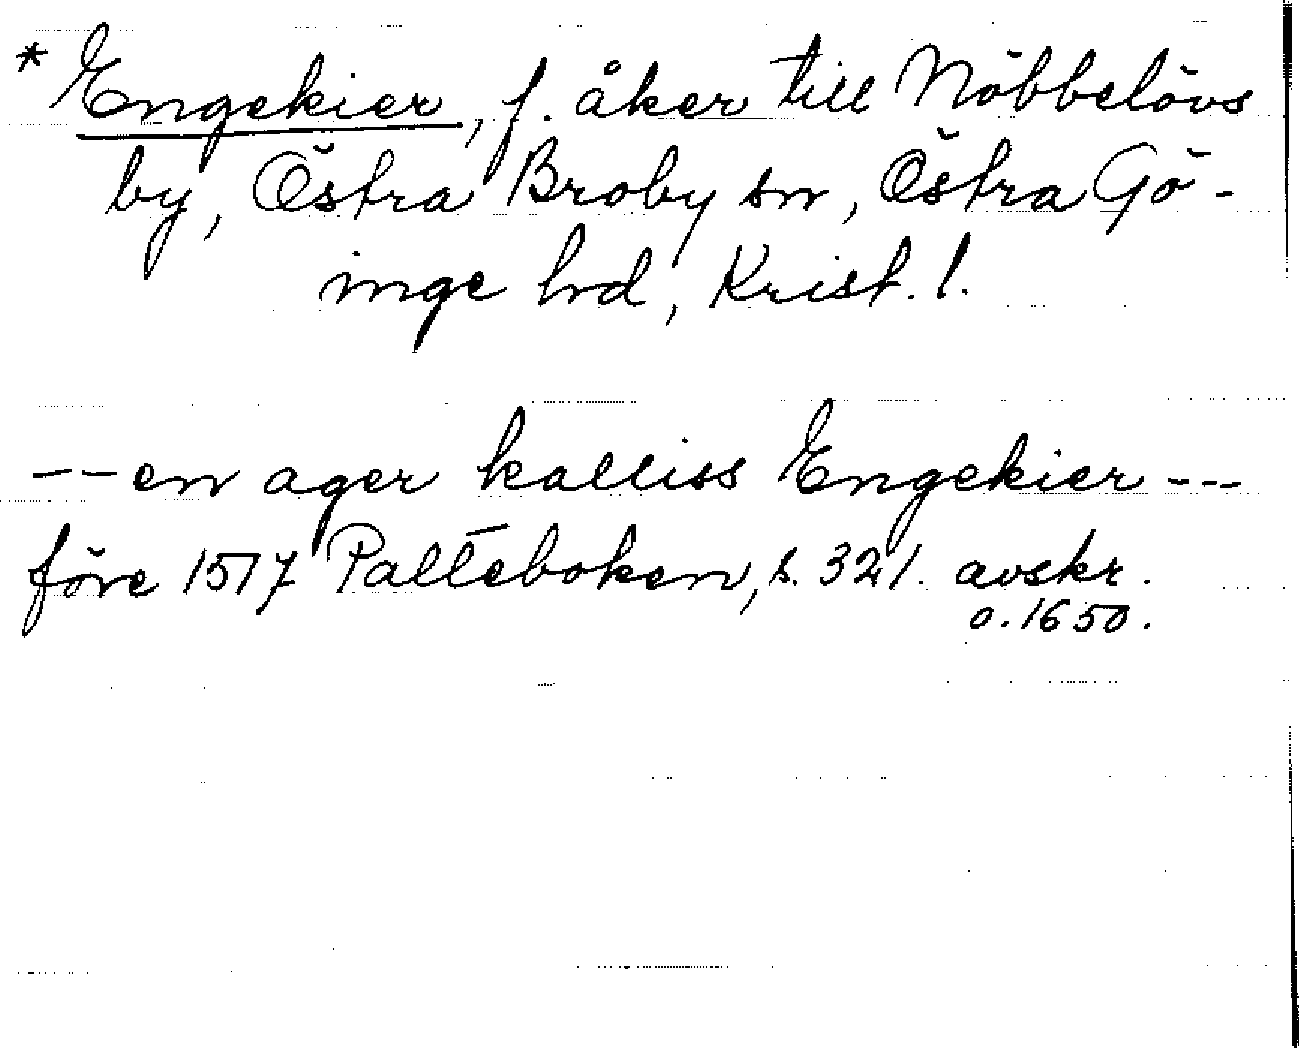 * Engekier, f. åker till Nöbbelövs
by, Östra Broby sn, Östra Gö-
inge hd, Krist. l.
--en ager kalliss Engekier ---
före 1517 Palteboken, s. 321. avskr.
o. 1650.